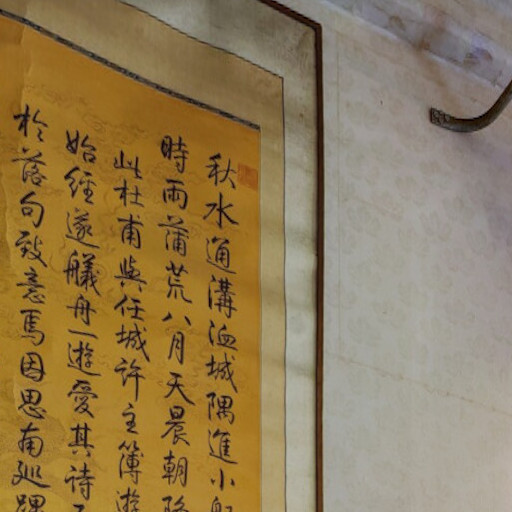 秋水通溝洫城隅進小船
時雨蒲荒八月天晨朝降
此杜甫與任城許主簿遊
始經邃艤舟一遊愛其詩
於落句致意焉因思南巡蹕